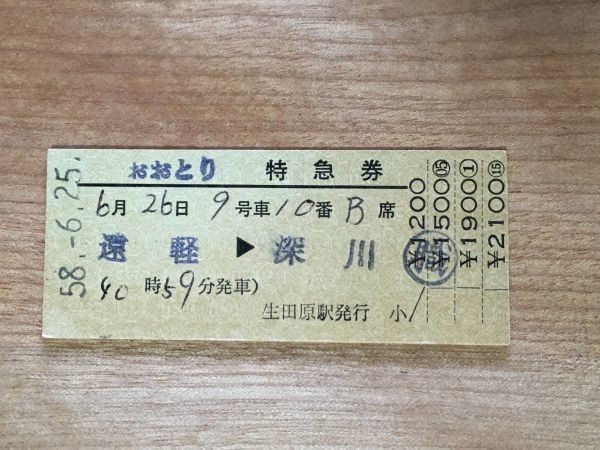 58.-6.25.
おおとり 特急券
6月26日 9号車10番B席
遠軽▶深川
時59分発車)
生田原駅発行 小
¥1200
¥1500 05
¥1900 ①
¥2100 ⑮